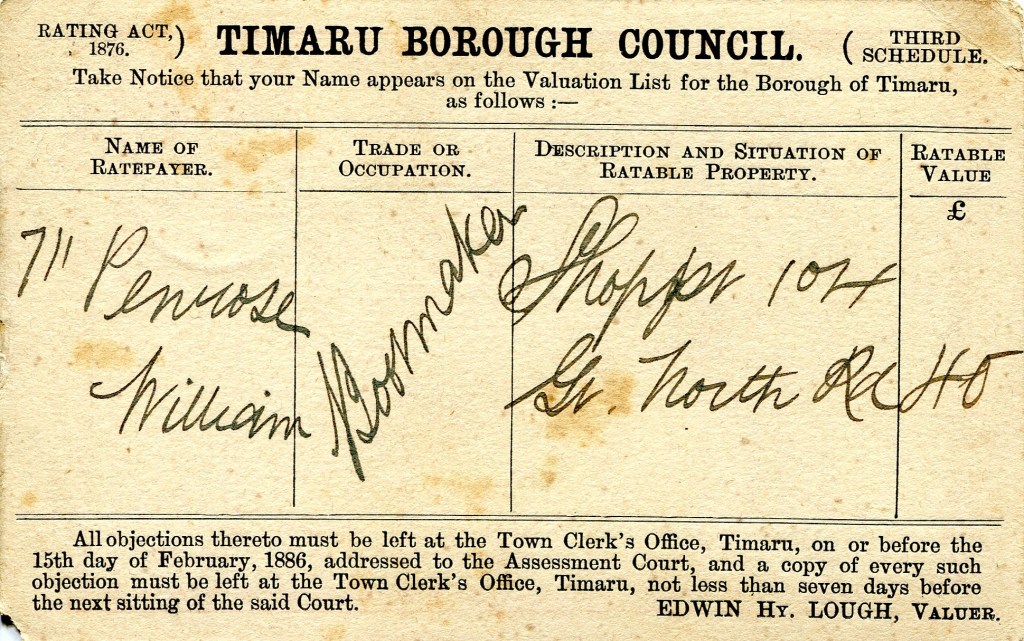 RATING ACT, 1876.) TIMARU BOROUGH COUNCIL. (THIRD SCHEDULE.
Take Notice that your Name appears on the Valuation List for the Borough of Timaru,
as follows :—
NAME OF RATEPAYER.
TRADE OR OCCUPATION.
DESCRIPTION AND SITUATION OF RATABLE PROPERTY.
RATABLE VALUE
£
711 Penrose
William
Bootmaker
Shop pt 104
Gt. North Rd
40
All objections thereto must be left at the Town Clerk's Office, Timaru, on or before the
15th day of February, 1886, addressed to the Assessment Court, and a copy of every such
objection must be left at the Town Clerk's Office, Timaru, not less than seven days before
the next sitting of the said Court.
EDWIN HY. LOUGH, VALUER.